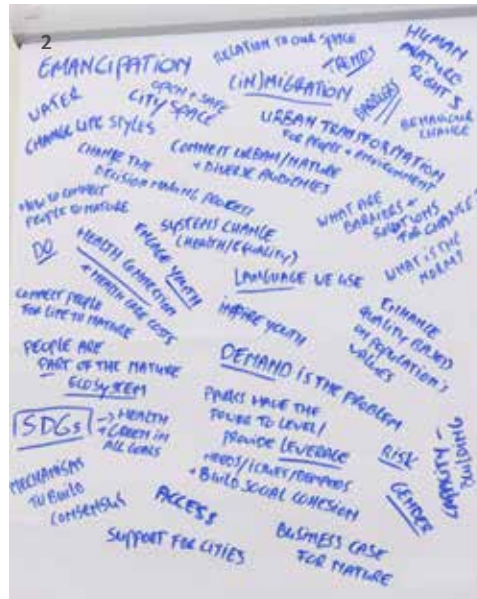 2
EMANCIPATION
RELATION TO OUR SPACE
TRENDS
HUMAN
NATURE
RIGHTS
WATER
OPEN + SAFE
CITY SPACE
(IN)MIGRATION
BARRIERS
BEHAVIOUR
CHANGE
CHANGE LIFE STYLES
URBAN TRANSFORMATION
FOR PEOPLE + ENVIRONMENT
CHANGE THE
DECISION MAKING PROCESS
CONNECT URBAN/NATURE
+ DIVERSE AUDIENCES
HOW TO CONNECT
PEOPLE TO NATURE
WHAT ARE
BARRIERS +
SOLUTIONS
FOR CHANGE?
SYSTEMS CHANGE
(HEALTH/EQUALITY)
DO
HEALTH CONNECTION
+ HEALTH CARE COSTS
ENGAGE YOUTH
LANGUAGE WE USE
WHAT IS THE
NORM?
CONNECT PEOPLE
FOR LIFE TO NATURE
INSPIRE YOUTH
ENHANCE
QUALITY BASED
ON POPULATION'S
VALUES
PEOPLE ARE
PART OF THE NATURE
ECOSYSTEM
DEMAND IS THE PROBLEM
SDGs
→ HEALTH
+ GREEN IN
ALL GOALS
PARKS HAVE THE
POWER TO LEVEL/
PROVIDE LEVERAGE
NEEDS/ISSUES/DEMANDS
+ BUILD SOCIAL COHESION
RISK
GENDER
CAPACITY-
BUILDING
MECHANISMS
TO BUILD
CONSENSUS
ACCESS
SUPPORT FOR CITIES
BUSINESS CASE
FOR NATURE